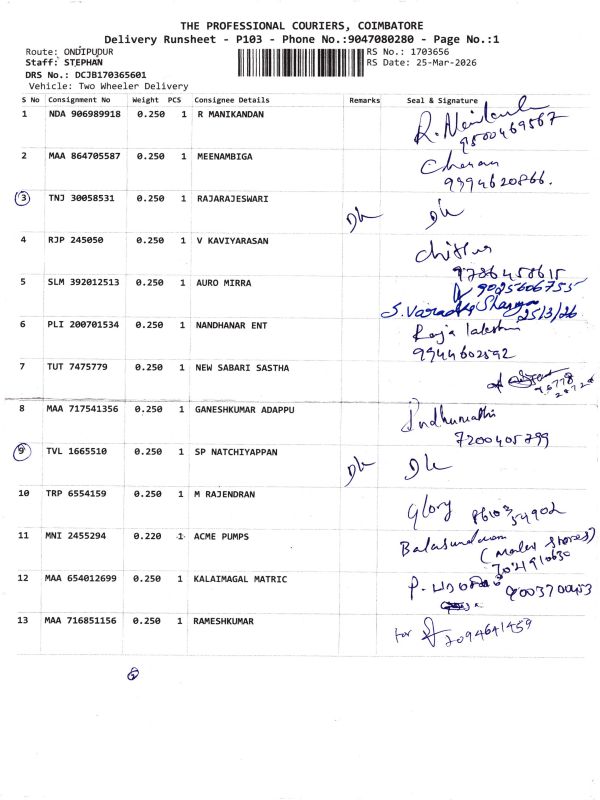 THE PROFESSIONAL COURIERS, COIMBATORE
Delivery Runsheet - P103 - Phone No.:9047080280 - Page No.:1
Route: ONDIPUDUR RS No.: 1703656
Staff: STEPHAN RS Date: 25-Mar-2026
DRS No.: DCJB170365601
Vehicle: Two Wheeler Delivery
S No Consignment No Weight PCS Consignee Details Remarks Seal & Signature
1 NDA 906989918 0.250 1 R MANIKANDAN
9500469567
2 MAA 864705587 0.250 1 MEENAMBIGA
9994620866.
3 TNJ 30058531 0.250 1 RAJARAJESWARI DL DL
4 RJP 245050 0.250 1 V KAVIYARASAN
9786458615
5 SLM 392012513 0.250 1 AURO MIRRA 9025606755
25/3/26
6 PLI 200701534 0.250 1 NANDHANAR ENT
9944602592
7 TUT 7475779 0.250 1 NEW SABARI SASTHA
8 MAA 717541356 0.250 1 GANESHKUMAR ADAPPU Indhumathi
7200405799
9 TVL 1665510 0.250 1 SP NATCHIYAPPAN DL DL
10 TRP 6554159 0.250 1 M RAJENDRAN Glory 8610354902
11 MNI 2455294 0.220 1 ACME PUMPS Balasundaram
12 MAA 654012699 0.250 1 KALAIMAGAL MATRIC
13 MAA 716851156 0.250 1 RAMESHKUMAR for 7094641459